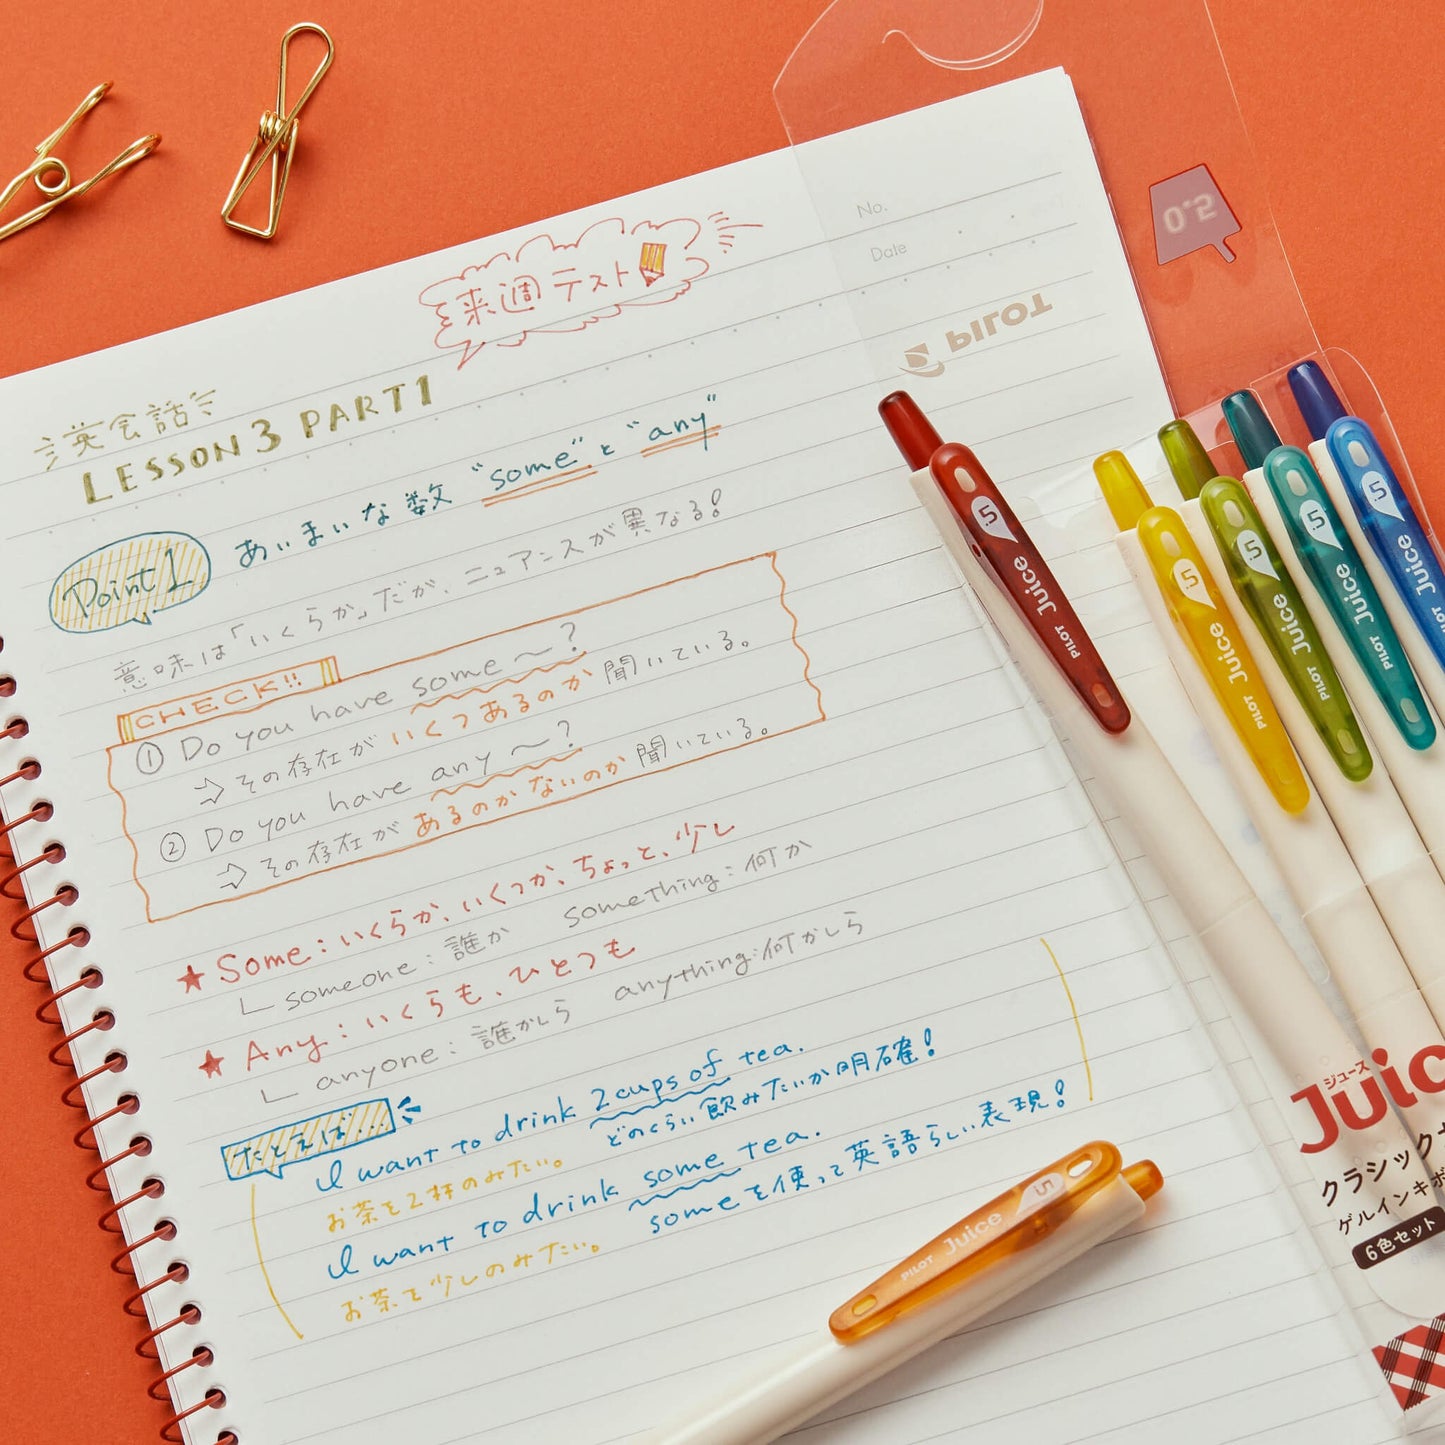 No.
Date
0.5
PILOT
来週テスト
英会話
LESSON 3 PART 1
Point 1
あいまいな数 "some" と "any"
意味は「いくらか」だが、ニュアンスが異なる!
CHECK!!
① Do you have some 〜?
⇨ その存在がいくつあるのか聞いている。
② Do you have any 〜?
⇨ その存在があるのかないのか聞いている。
★ Some:いくらか、いくつか、ちょっと、少し
∟ someone:誰か something:何か
★ Any:いくらも、ひとつも
∟ anyone:誰かしら anything:何かしら
たとえば…
I want to drink 2 cups of tea.
お茶を2杯のみたい。 どのくらい飲みたいか明確!
I want to drink some tea.
お茶を少しのみたい。 someを使って英語らしい表現!
PILOT Juice .5
PILOT Juice .5
PILOT Juice .5
PILOT Juice .5
PILOT Juice .5
PILOT Juice .5
ジュース
Juic
クラシック
ゲルインキボ
6色セット